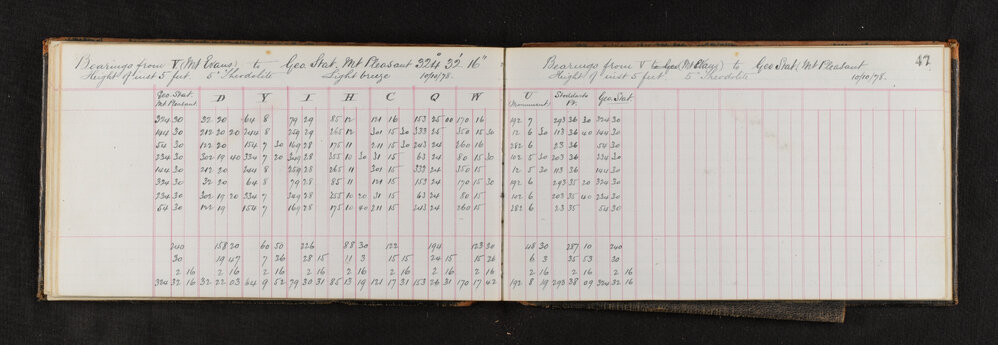 Bearings from V (Mt Evans) to Geo. Stat. Mt Pleasant 324° 32' 16"
Height of inst 5 feet. 5" Theodolite Light breeze 10/10/78.
Geo. Stat. Mt Pleasant D Y I H C Q W
324 30 32 20 64 8 79 29 85 12 121 16 153 25 00 170 16
144 30 212 20 20 244 8 259 29 265 12 301 15 30 333 25 350 15 30
54 30 122 20 154 7 30 169 28 175 11 211 15 30 243 24 260 16
234 30 302 19 40 334 7 20 349 28 355 10 30 31 15 63 24 80 15 30
144 30 212 20 244 8 259 28 265 11 301 15 333 24 350 15
324 30 32 20 64 8 79 28 85 11 121 15 153 24 170 15 30
234 30 302 19 20 334 7 349 28 355 10 20 31 15 63 24 80 15
54 30 122 19 154 7 169 28 175 10 40 211 15 243 24 260 15
240 158 20 60 50 226 88 30 122 194 123 30
30 19 47 7 36 28 15 11 3 15 15 24 15 15 26
2 16 2 16 2 16 2 16 2 16 2 16 2 16 2 16
324 32 16 32 22 03 64 9 52 79 30 31 85 13 19 121 17 31 153 26 31 170 17 42
47
Bearings from V to Geo (Mt Evans) to Geo Stat. Mt Pleasant
Height of inst 5 feet. 5" Theodolite 10/10/78.
U (Monument) Stoddarts Pt. Geo. Stat
192 7 293 36 30 324 30
12 6 30 113 36 40 144 30
282 6 23 36 54 30
102 5 30 203 36 234 30
12 5 30 113 36 144 30
192 6 293 35 20 324 30
102 6 203 35 40 234 30
282 6 23 35 54 30
48 30 287 10 240
6 3 35 53 30
2 16 2 16 2 16
192 8 19 293 38 09 324 32 16